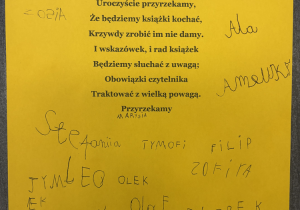 Uroczyście przyrzekamy,
Że będziemy książki kochać,
Krzywdy zrobić im nie damy.
I wskazówek, i rad książek
Będziemy słuchać z uwagą;
Obowiązki czytelnika
Traktować z wielką powagą.
Przyrzekamy
Ala
Stefania TYMOFI FILIP
ZOFIA
TYM LEO OLEK
OLAF